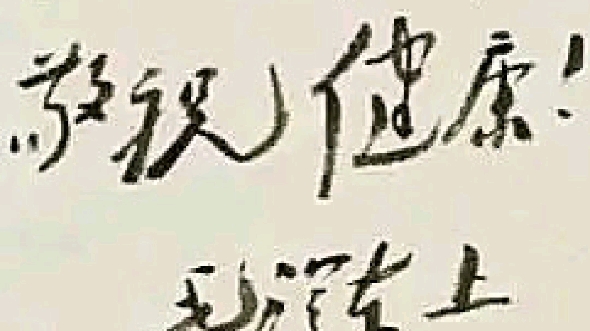 敬祝健康!
毛泽东上